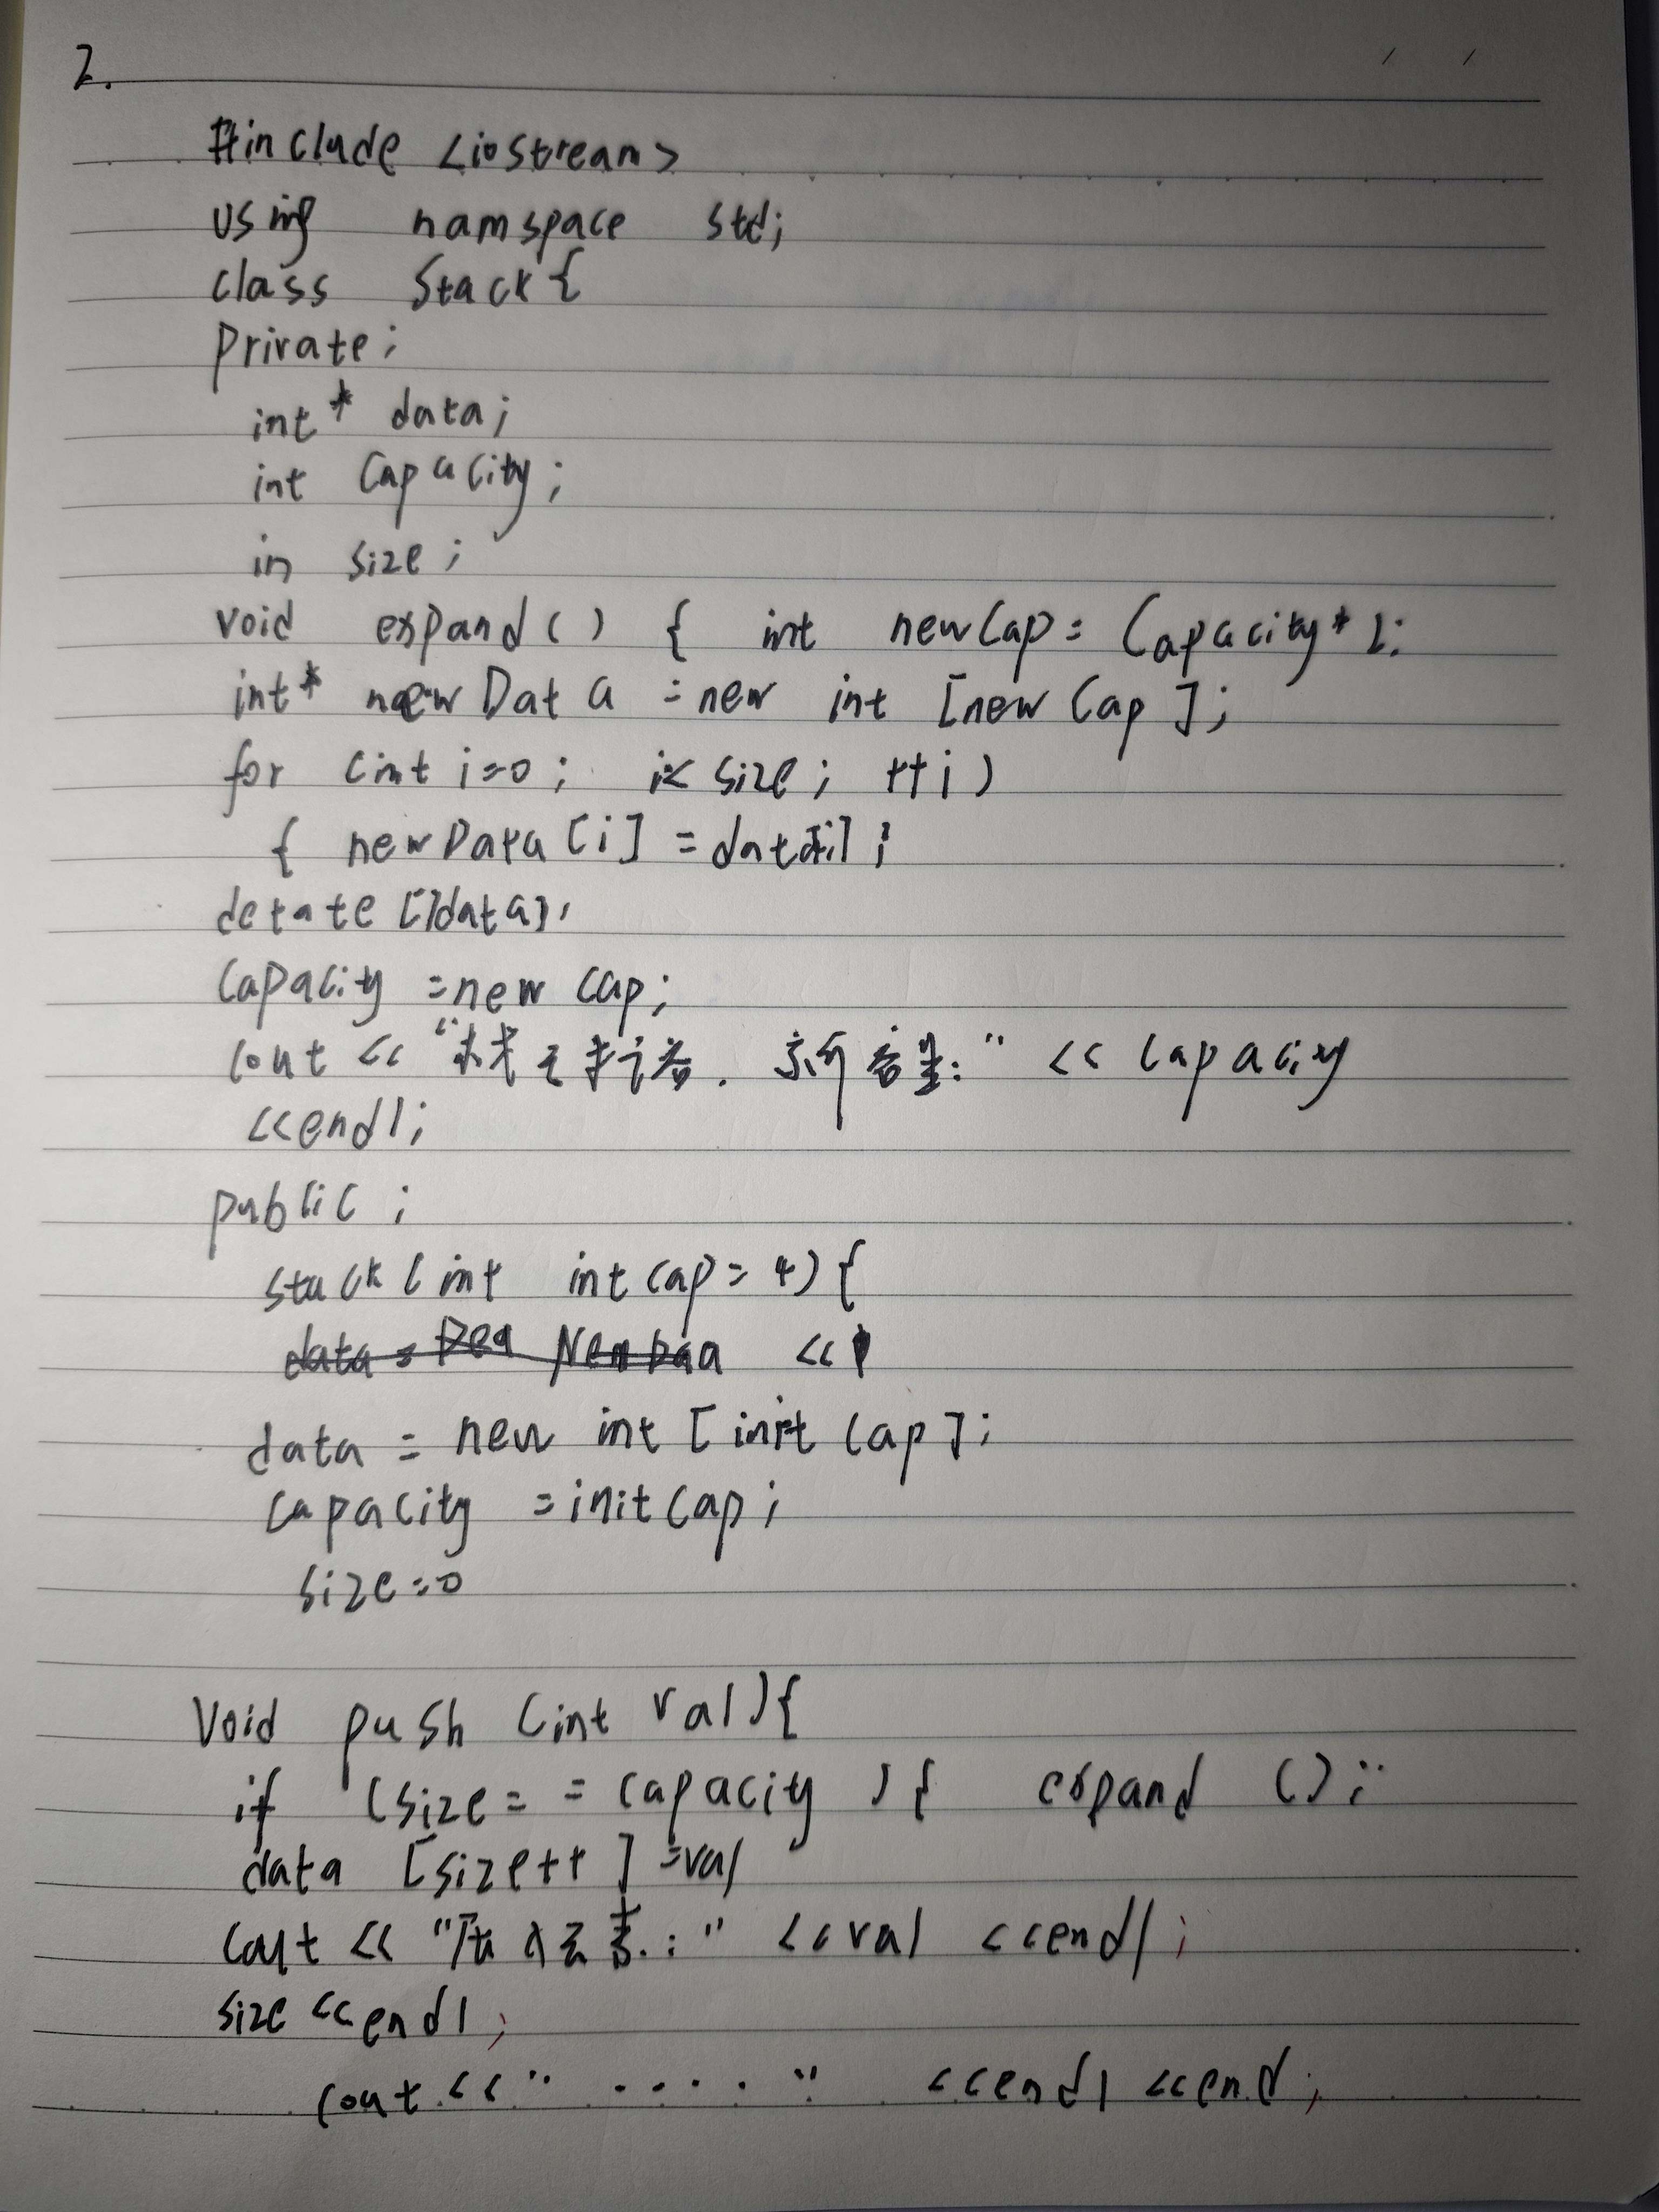 2.
#include <iostream>
using namspace std;
class Stack {
private;
int* data;
int Capacity;
in size;
void expand() { int newCap = Capacity*2;
int* newData = new int [newCap];
for (int i=0; i< size; ++i)
{ newData[i] = data[i];
detate []data;
Capacity = new cap;
cout << "栈已扩容. 新容量:" << Capacity
<<endl;
public;
stack(int intcap=4){
data = new int [init Cap];
capacity = initCap;
size=0
Void push (int val){
if (size== capacity){ expand ();
data [size++] = val
cout << "压入元素:" <<val <<endl;
size <<endl;
cout << "...." <<endl <<end;